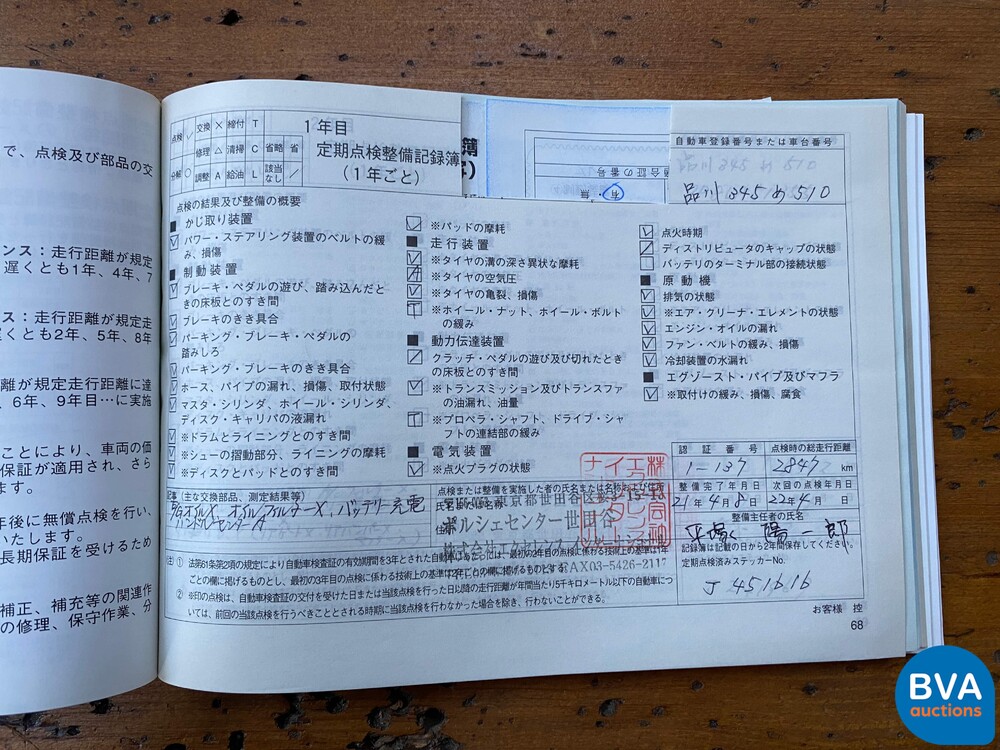 で、点検及び部品の交
ンス：走行距離が規定
遅くとも1年、4年、7
ス：走行距離が規定走
くとも2年、5年、8年
離が規定走行距離に達
、6年、9年目…に実施
ことにより、車両の価
保証が適用され、さら
ます。
年後に無償点検を行い、
いたします。
長期保証を受けるため
補正、補充等の関連作
の修理、保守作業、分
点検 レ 交換 × 締付 T
修理 △ 清掃 C 省略 省
分解 ○ 調整 A 給油 L 該当なし ／
1年目
定期点検整備記録簿
（1年ごと）
合証の番号
有・無
自動車登録番号または車台番号
品川 345 め 510
品川 345 め 510
点検の結果及び整備の概要
■ かじ取り装置
パワー・ステアリング装置のベルトの緩
み、損傷
■ 制動装置
ブレーキ・ペダルの遊び、踏み込んだと
きの床板とのすき間
ブレーキのきき具合
パーキング・ブレーキ・ペダルの
踏みしろ
パーキング・ブレーキのきき具合
ホース、パイプの漏れ、損傷、取付状態
マスタ・シリンダ、ホイール・シリンダ、
ディスク・キャリパの液漏れ
※ドラムとライニングとのすき間
※シューの摺動部分、ライニングの摩耗
※ディスクとパッドとのすき間
※パッドの摩耗
■ 走行装置
※タイヤの溝の深さ異状な摩耗
※タイヤの空気圧
※タイヤの亀裂、損傷
※ホイール・ナット、ホイール・ボルト
の緩み
■ 動力伝達装置
クラッチ・ペダルの遊び及び切れたとき
の床板とのすき間
※トランスミッション及びトランスファ
の油漏れ、油量
※プロペラ・シャフト、ドライブ・シャ
フトの連結部の緩み
■ 電気装置
※点火プラグの状態
点火時期
ディストリビュータのキャップの状態
バッテリのターミナル部の接続状態
■ 原動機
排気の状態
※エア・クリーナ・エレメントの状態
エンジン・オイルの漏れ
ファン・ベルトの緩み、損傷
冷却装置の水漏れ
■ エグゾースト・パイプ及びマフラ
※取付けの緩み、損傷、腐食
認証番号 点検時の総走行距離
1-137 2847 km
整備完了年月日 次回の点検年月日
21年4月8日 22年4月 日
整備主任者の氏名
郎
記録簿は記載の日から2年間保存してください。
定期点検済みステッカーNo.
J 451616
記事（主な交換部品、測定結果等）
オイルX、オイルフィルターX、バッテリー充電
点検または整備を実施した者の氏名または名称および住所
氏名または名称
東京都世田谷区
ポルシェセンター世田谷
住所
FAX03-5426-2117
（注）① 法第61条第2項の規定により自動車検査証の有効期間を3年とされた自動車にあたしては、最初の2年目の点検に係わる技術上の基準は1年
ごとの欄に掲げるものとし、最初の3年目の点検に係わる技術上の基準は2年ごとの欄に掲げるものとする。
② ※印の点検は、自動車検査証の交付を受けた日または当該点検を行った日以降の走行距離が年間当たり5千キロメートル以下の自動車につ
いては、前回の当該点検を行うべきこととされる時期に当該点検を行わなかった場合を除き、行わないことができる。
お客様 控
68
BVA
auctions